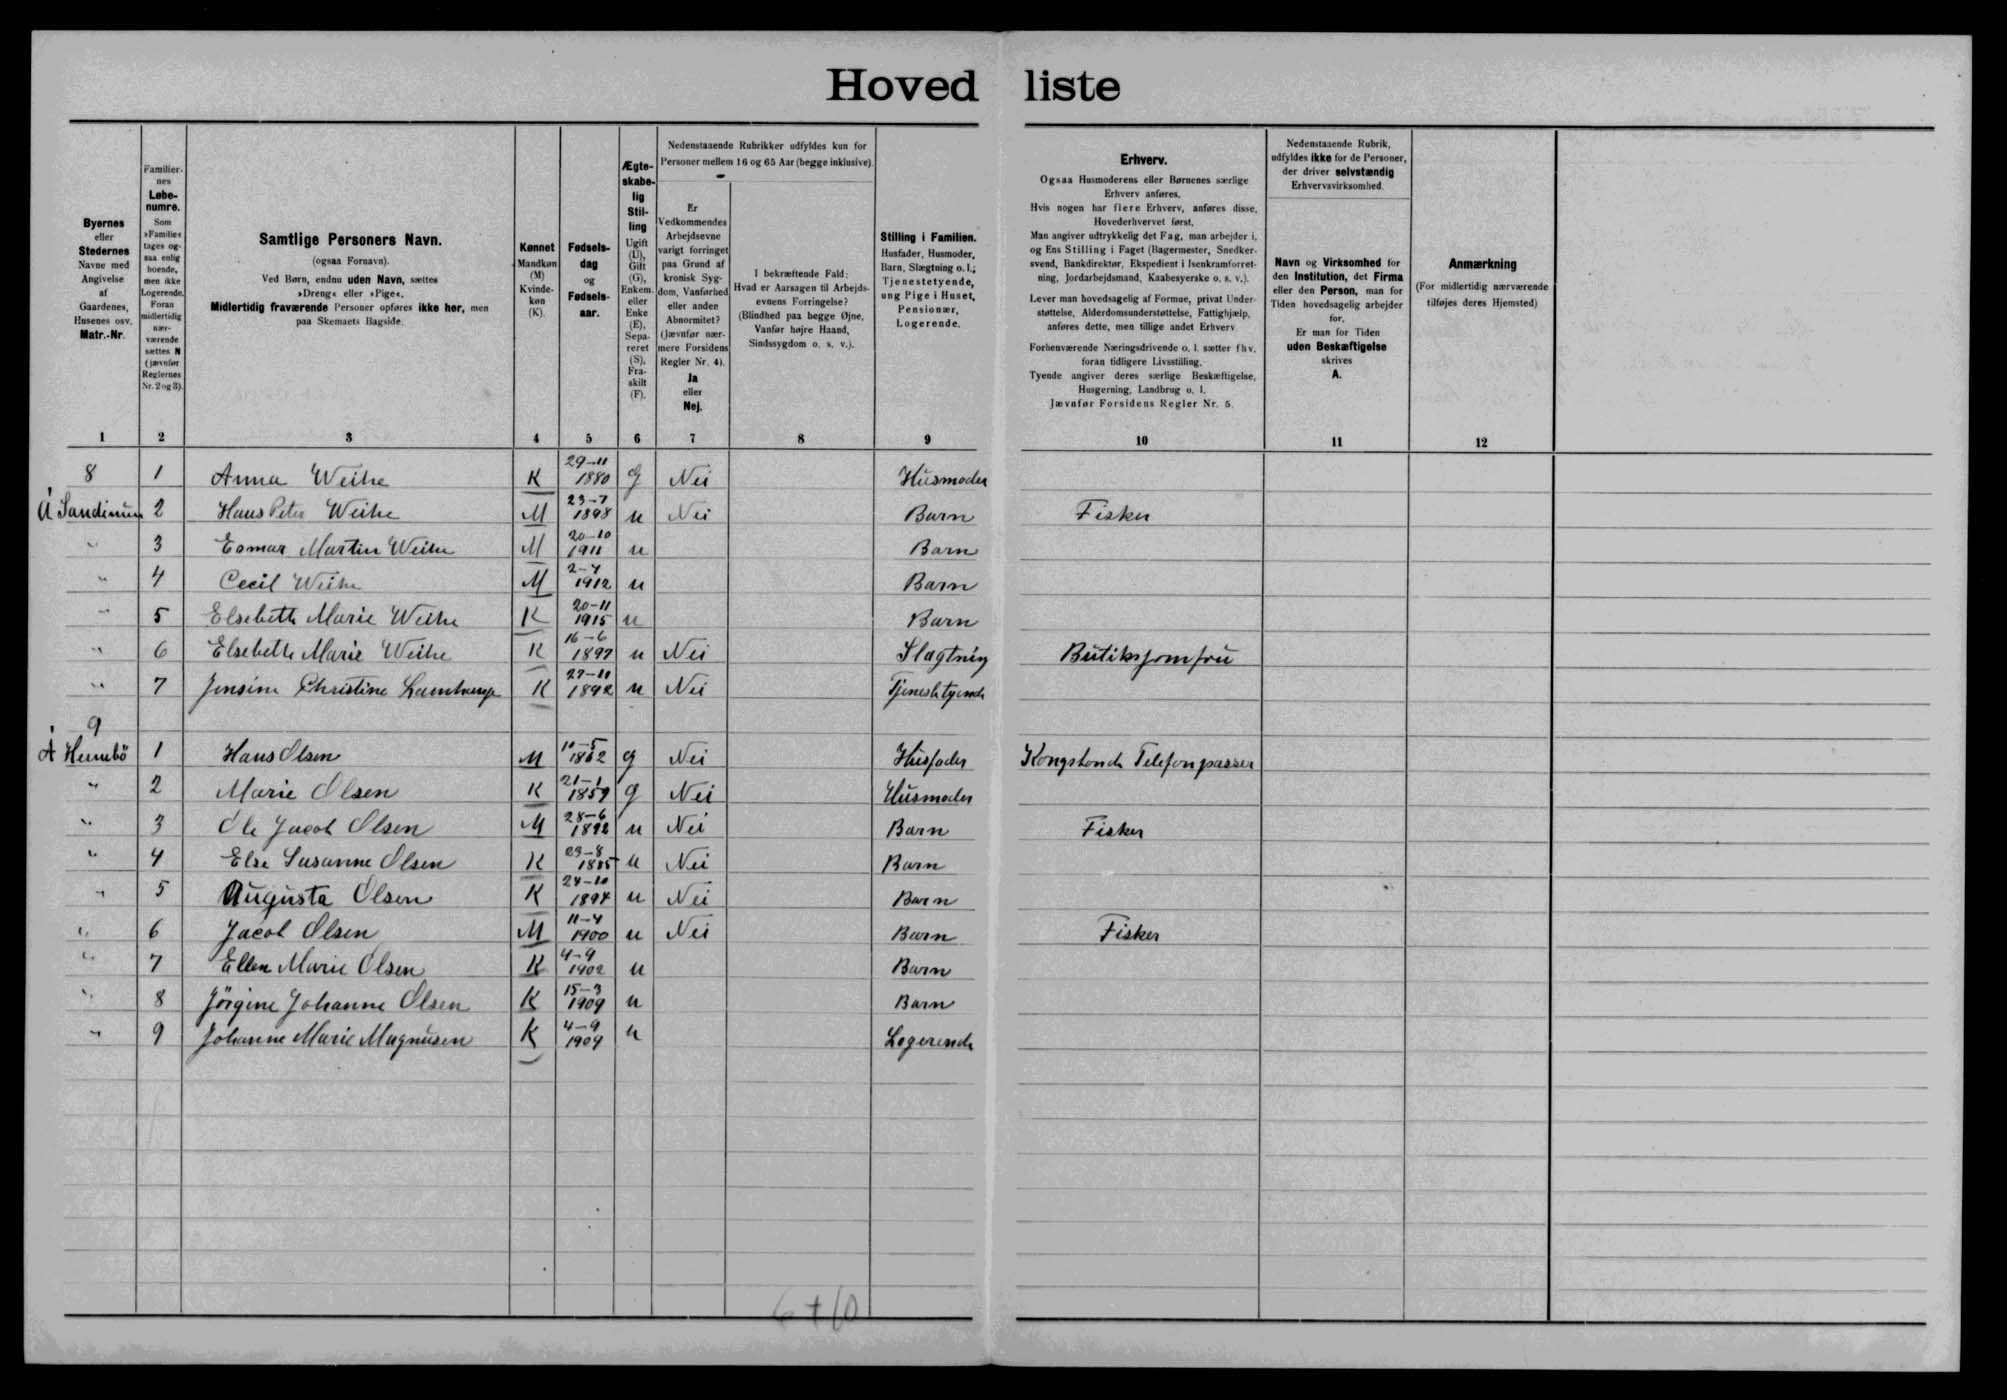 Hovedliste
Byernes
eller
Stedernes
Navne med
Angivelse
af
Gaardenes,
Husenes osv.
Matr.-Nr.
1
Familier-
nes
Løbe-
numre.
Som
»Familie«
tages og-
saa enlig
boende,
men ikke
Logerende.
Foran
midlertidig
nær-
værende
sættes N
(jævnfør
Reglernes
Nr. 2 og 3).
2
Samtlige Personers Navn.
(ogsaa Fornavn).
Ved Børn, endnu uden Navn, sættes
»Dreng« eller »Pige«.
Midlertidig fraværende Personer opføres ikke her, men
paa Skemaets Bagside.
3
Kønnet
Mandkøn
(M)
Kvinde-
køn
(K).
4
Fødsels-
dag
og
Fødsels-
aar.
5
Ægte-
skabe-
lig
Stil-
ling
Ugift
(U),
Gift
(G),
Enkem.
eller
Enke
(E),
Sepa-
reret
(S),
Fra-
skilt
(F).
6
Nedenstaaende Rubrikker udfyldes kun for
Personer mellem 16 og 65 Aar (begge inklusive).
Er
Vedkommendes
Arbejdsevne
varigt forringet
paa Grund af
kronisk Syg-
dom, Vanførhed
eller anden
Abnormitet?
(jævnfør nær-
mere Forsidens
Regler Nr. 4).
Ja
eller
Nej.
7
I bekræftende Fald:
Hvad er Aarsagen til Arbejds-
evnens Forringelse?
(Blindhed paa begge Øjne,
Vanfør højre Haand,
Sindssygdom o. s. v.).
8
Stilling i Familien.
Husfader, Husmoder,
Barn, Slægtning o. l.;
Tjenestetyende,
ung Pige i Huset,
Pensionær,
Logerende.
9
Erhverv.
Ogsaa Husmoderens eller Børnenes særlige
Erhverv anføres.
Hvis nogen har flere Erhverv, anføres disse,
Hovederhvervet først.
Man angiver udtrykkelig det Fag, man arbejder i,
og Ens Stilling i Faget (Bagermester, Snedker-
svend, Bankdirektør, Ekspedient i Isenkramforret-
ning, Jordarbejdsmand, Kaabesyerske o. s. v.).
Lever man hovedsagelig af Formue, privat Under-
støttelse, Alderdomsunderstøttelse, Fattighjælp,
anføres dette, men tillige andet Erhverv
Forhenværende Næringsdrivende o. l. sætter fhv.
foran tidligere Livsstilling.
Tyende angiver deres særlige Beskæftigelse,
Husgerning, Landbrug o. l.
Jævnfør Forsidens Regler Nr. 5.
10
Nedenstaaende Rubrik,
udfyldes ikke for de Personer,
der driver selvstændig
Erhvervsvirksomhed.
Navn og Virksomhed for
den Institution, det Firma
eller den Person, man for
Tiden hovedsagelig arbejder
for.
Er man for Tiden
uden Beskæftigelse
skrives
A.
11
Anmærkning
(For midlertidig nærværende
tilføjes deres Hjemsted)
12
8 1 Anna Weihe K 29-11 1880 G Nei Husmoder
Á Sandinum 2 Hans Peter Weihe M 23-7 1898 u Nei Barn Fisker
" 3 Esmar Martin Weihe M 20-10 1911 u Barn
" 4 Cecil Weihe M 2-4 1912 u Barn
" 5 Elsebeth Marie Weihe K 20-11 1915 u Barn
" 6 Elsebeth Marie Weihe K 16-6 1897 u Nei Slægtning Butiksjomfru
" 7 Jensine Christine K 27-11 1892 u Nei Tjenestetyende
9
Á 1 Hans Olsen M 10-5 1862 g Nei Husfader Telefonpasser
" 2 Marie Olsen K 21-1 1859 g Nei Husmoder
" 3 Ole Jacob Olsen M 28-6 1892 u Nei Barn Fisker
" 4 Else Susanne Olsen K 23-8 1885 u Nei Barn
" 5 Augusta Olsen K 24-10 1894 u Nei Barn
" 6 Jacob Olsen M 11-4 1900 u Nei Barn Fisker
" 7 Ellen Marie Olsen K 4-9 1902 u Barn
" 8 Jörgine Johanne Olsen K 15-3 1909 u Barn
" 9 Johanne Marie Magnusen K 4-9 1909 u Logerende
6+10